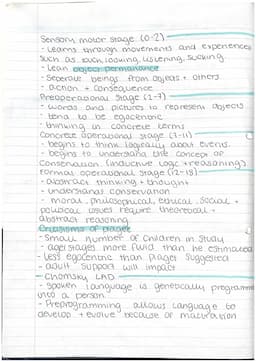 Sensory motor stage (0-2)
- Learns through movements and experiences
such as such looking, listening, sucking.
- Lean object permanance
- Seperate beings from objects + others.
- action + consequence
Preoperational stage (2-7)
- words and pictures to represent objects
- tend to be egocentric
- thinking in concrete terms
Concrete operational stage (7-11)
- begins to think logically about events.
- begins to understand the concept of
conservation. (inductive logic + reasoning)
Formal operational stage (12-18)
- abstract thinking + thought
- understands conservation
- moral, philosophical, ethical, social +
political issues require theoretical +
abstract reasoning
Criticisms of piaget
- Small number of children in study
- age/stages more fluid than he estimated
- less egocentric than piaget suggested
- adult support will impact
- Chomsky LAD
- spoken language is genetically programme
into a person.
- Preprogramming allows language to
develop + evolve because of maturation